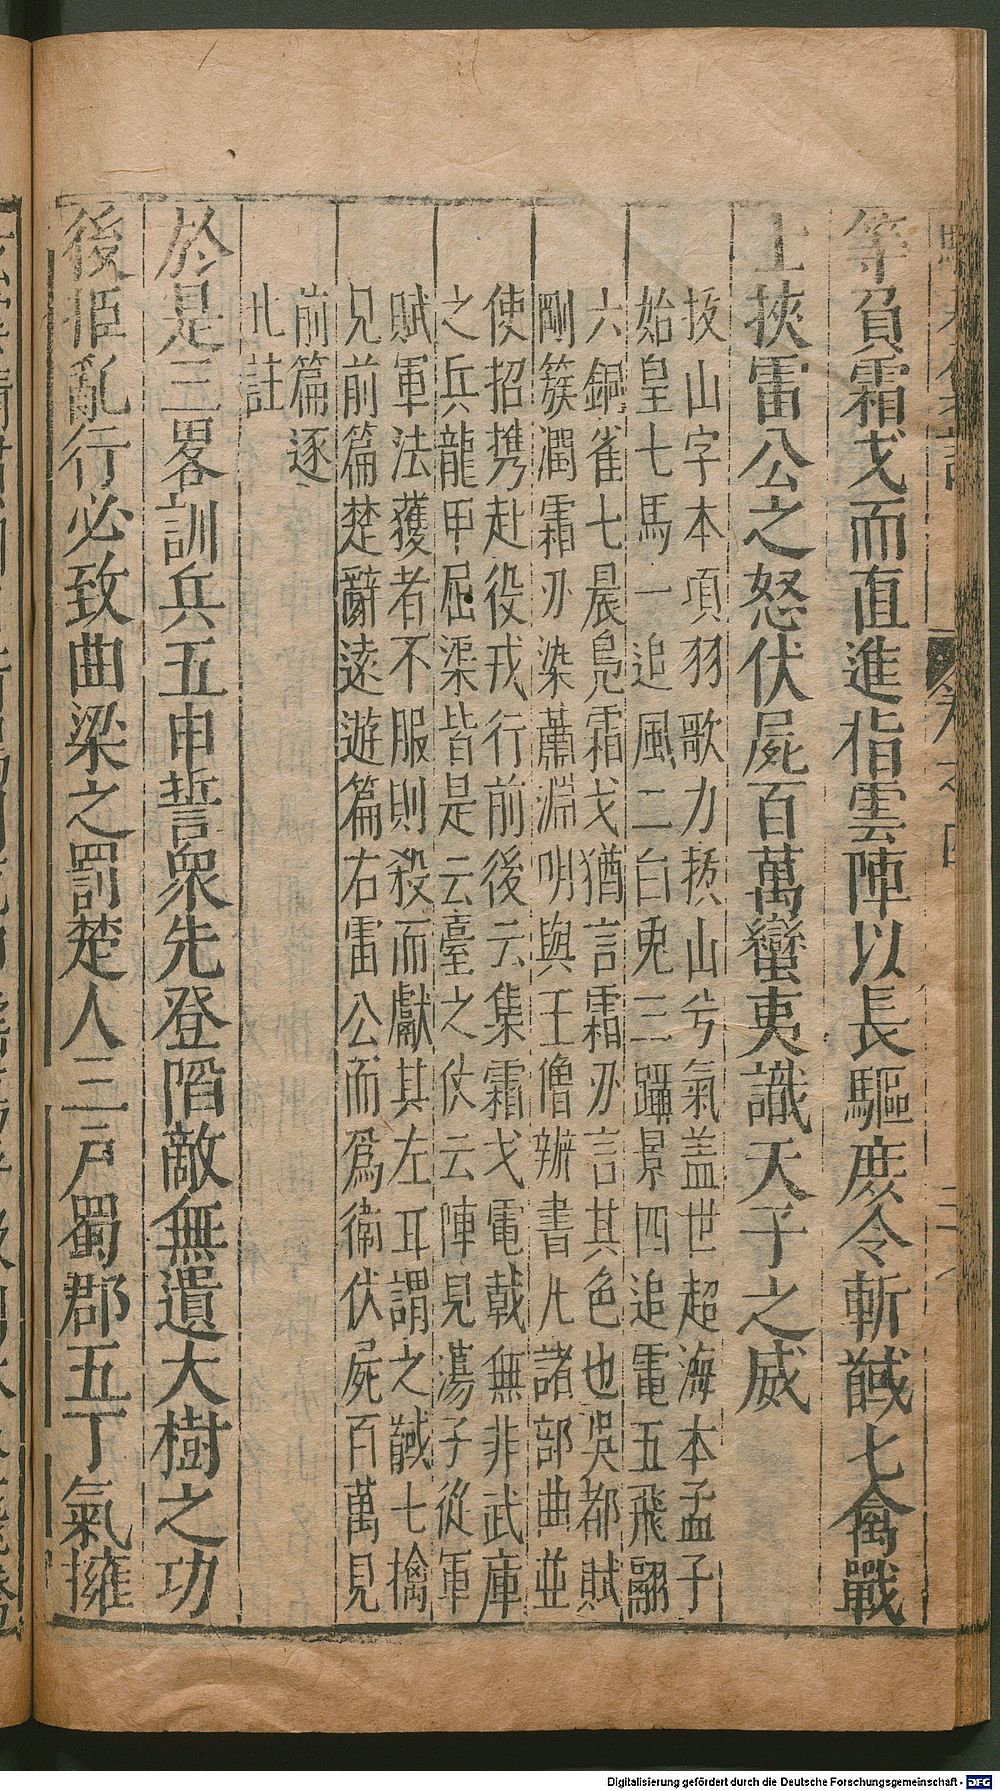 等負霜戈而直進指雲陣以長驅庶令斬馘七禽戰
士挾雷公之怒伏屍百萬蠻夷識天子之威
拔山字本項羽歌力拔山兮氣盖世超海本孟子
始皇七馬一追風二白兎三躡景四追電五飛翮
六銅雀七晨鳧霜戈猶言霜刃言其色也吳都賦
剛簇潤霜刃染蕭淵明與王僧辧書凢諸部曲並
使招携赴役戎行前後云集霜戈電戟無非武庫
之兵龍甲屈渠皆是云臺之仗云陣見蕩子從軍
賦軍法獲者不服則殺而獻其左耳謂之馘七擒
見前篇楚辭遠遊篇右雷公而爲衛伏屍百萬見
前篇逐
北註
於是三畧訓兵五申誓衆先登陷敵無遺大樹之功
後拒亂行必致曲梁之罰楚人三戶蜀郡五丁氣擁
Digitalisierung gefördert durch die Deutsche Forschungsgemeinschaft - DFG